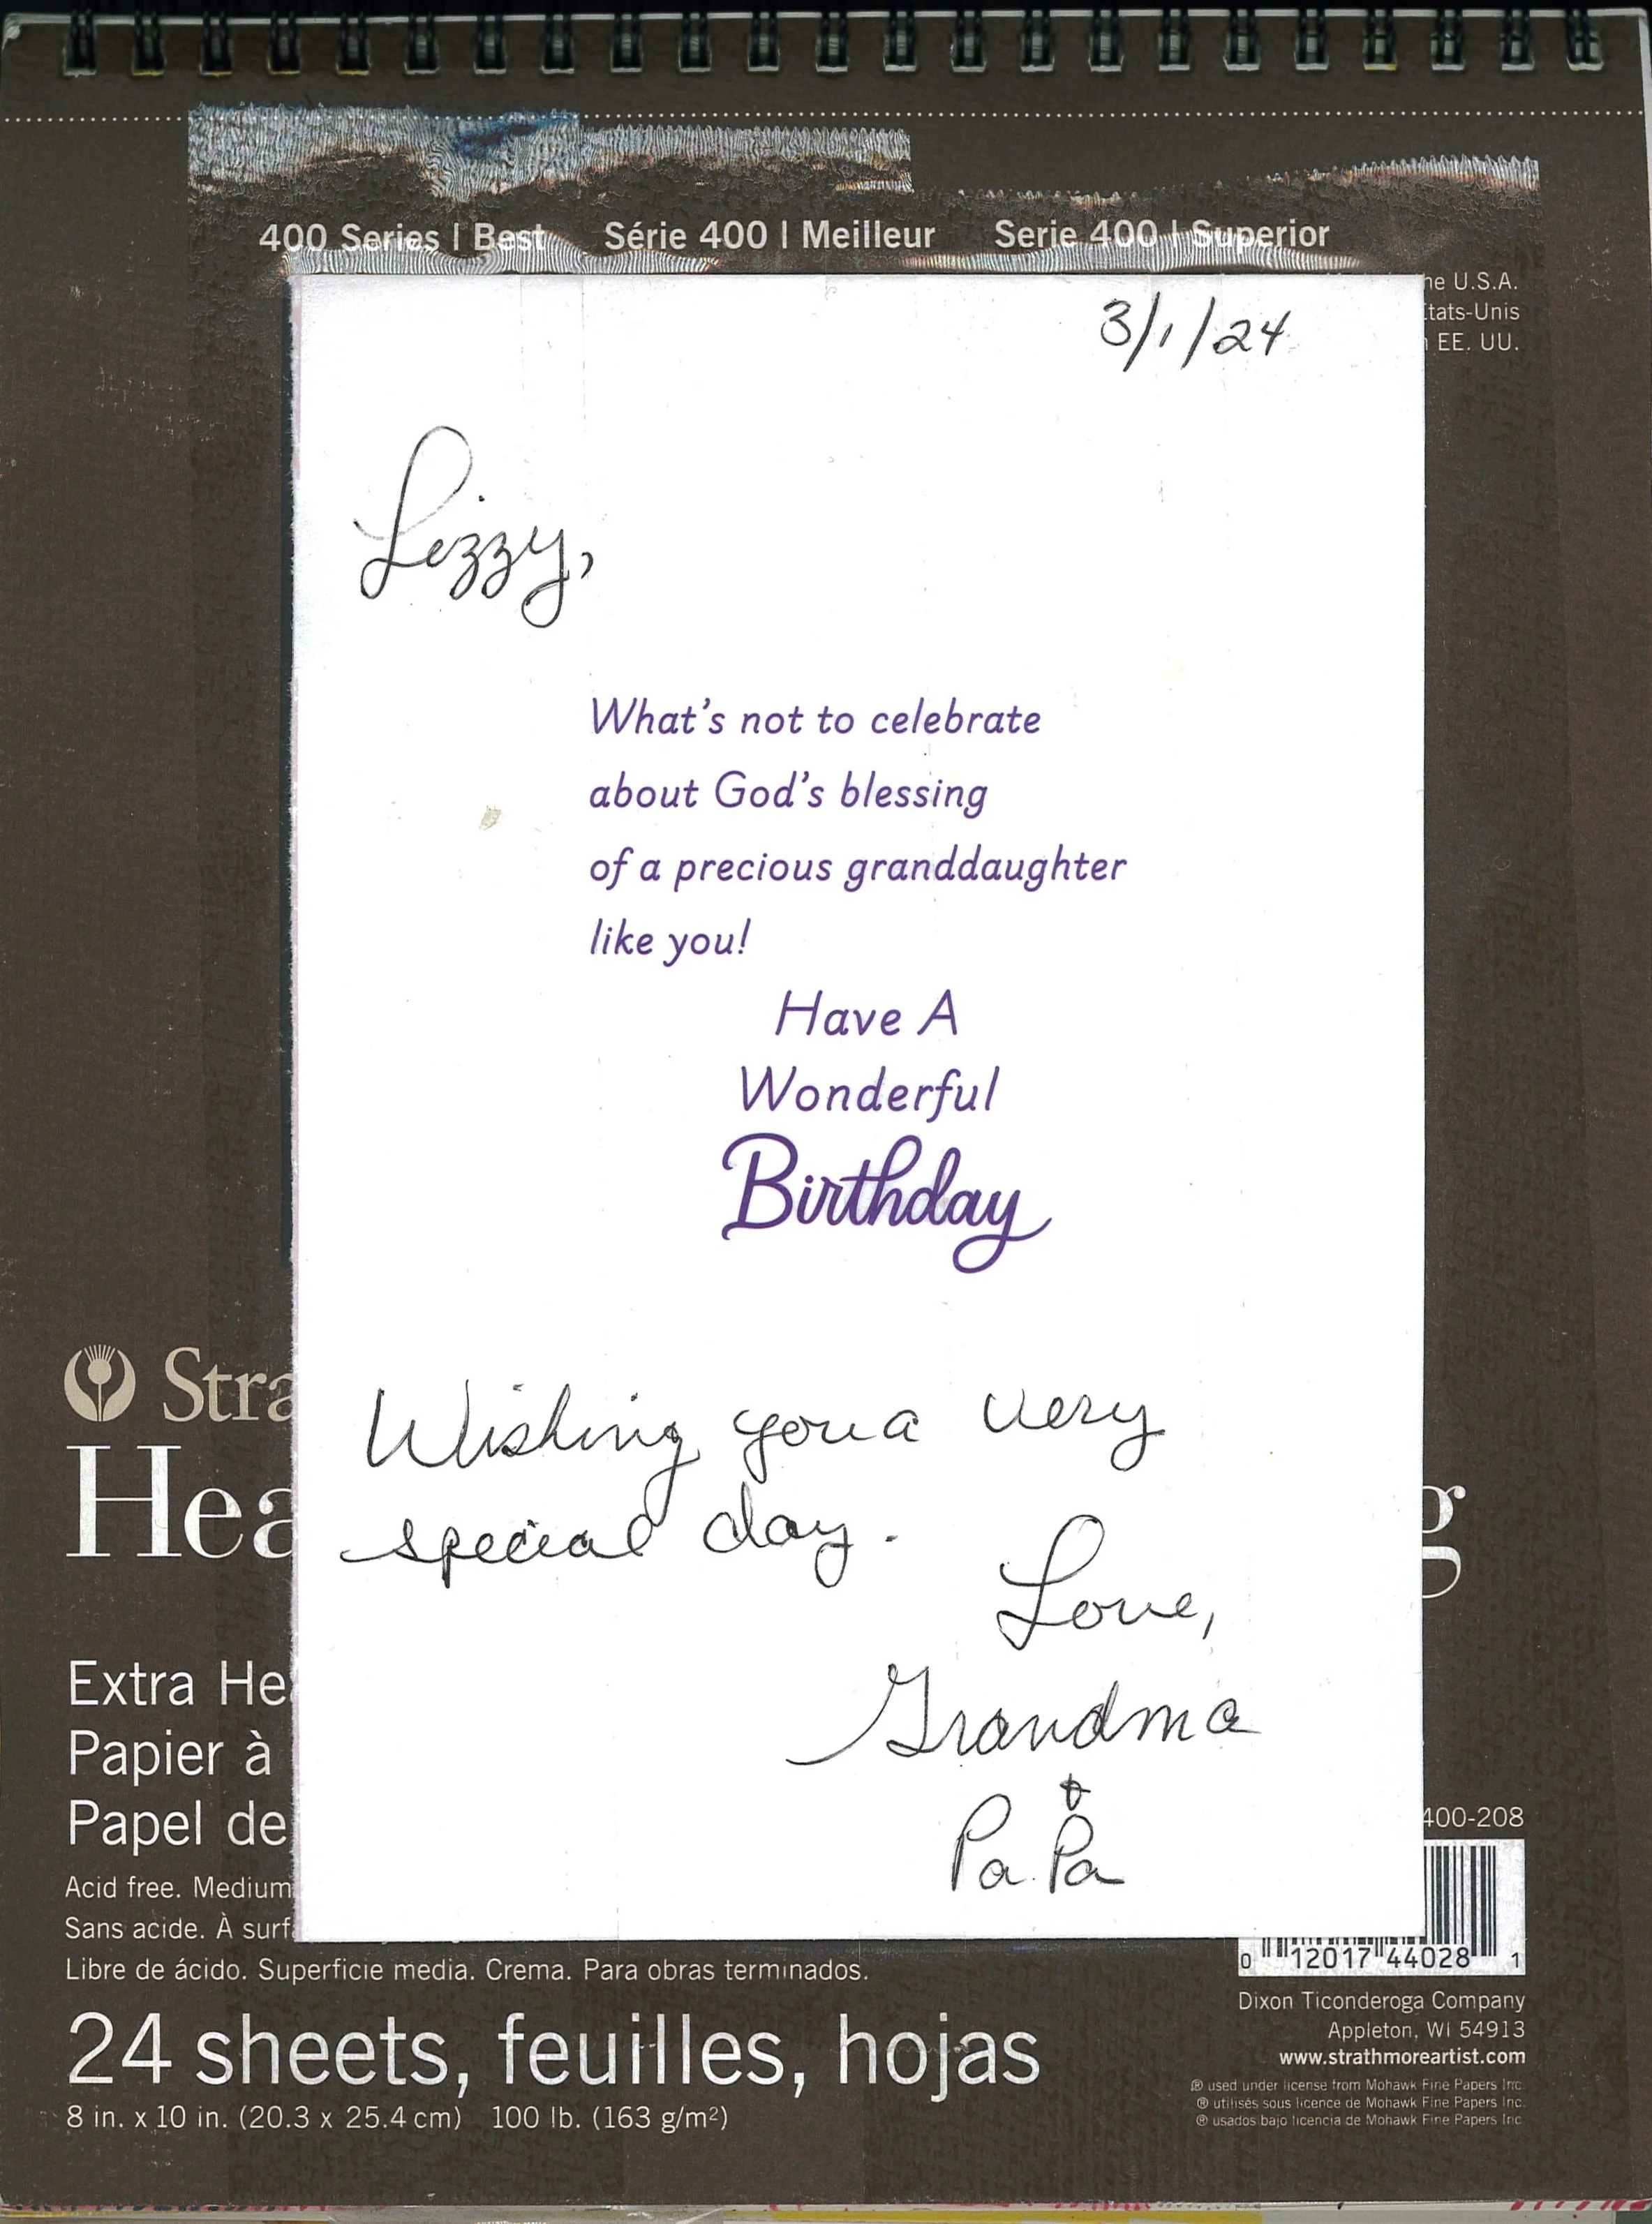 400 Series | Best Série 400 | Meilleur Serie 400 | Superior
he U.S.A.
États-Unis
EE. UU.
3/1/24
Lizzy,
What's not to celebrate
about God's blessing
of a precious granddaughter
like you!
Have A
Wonderful
Birthday
Wishing you a very
special day.
Love,
Grandma
&
Pa Pa
Stra
Hea g
Extra He
Papier à
Papel de
400-208
Acid free. Medium
Sans acide. À surf
Libre de ácido. Superficie media. Crema. Para obras terminados.
0 12017 44028 1
24 sheets, feuilles, hojas
8 in. x 10 in. (20.3 x 25.4 cm) 100 lb. (163 g/m²)
Dixon Ticonderoga Company
Appleton, WI 54913
www.strathmoreartist.com
® used under license from Mohawk Fine Papers Inc.
® utilisés sous licence de Mohawk Fine Papers Inc.
® usados bajo licencia de Mohawk Fine Papers Inc.